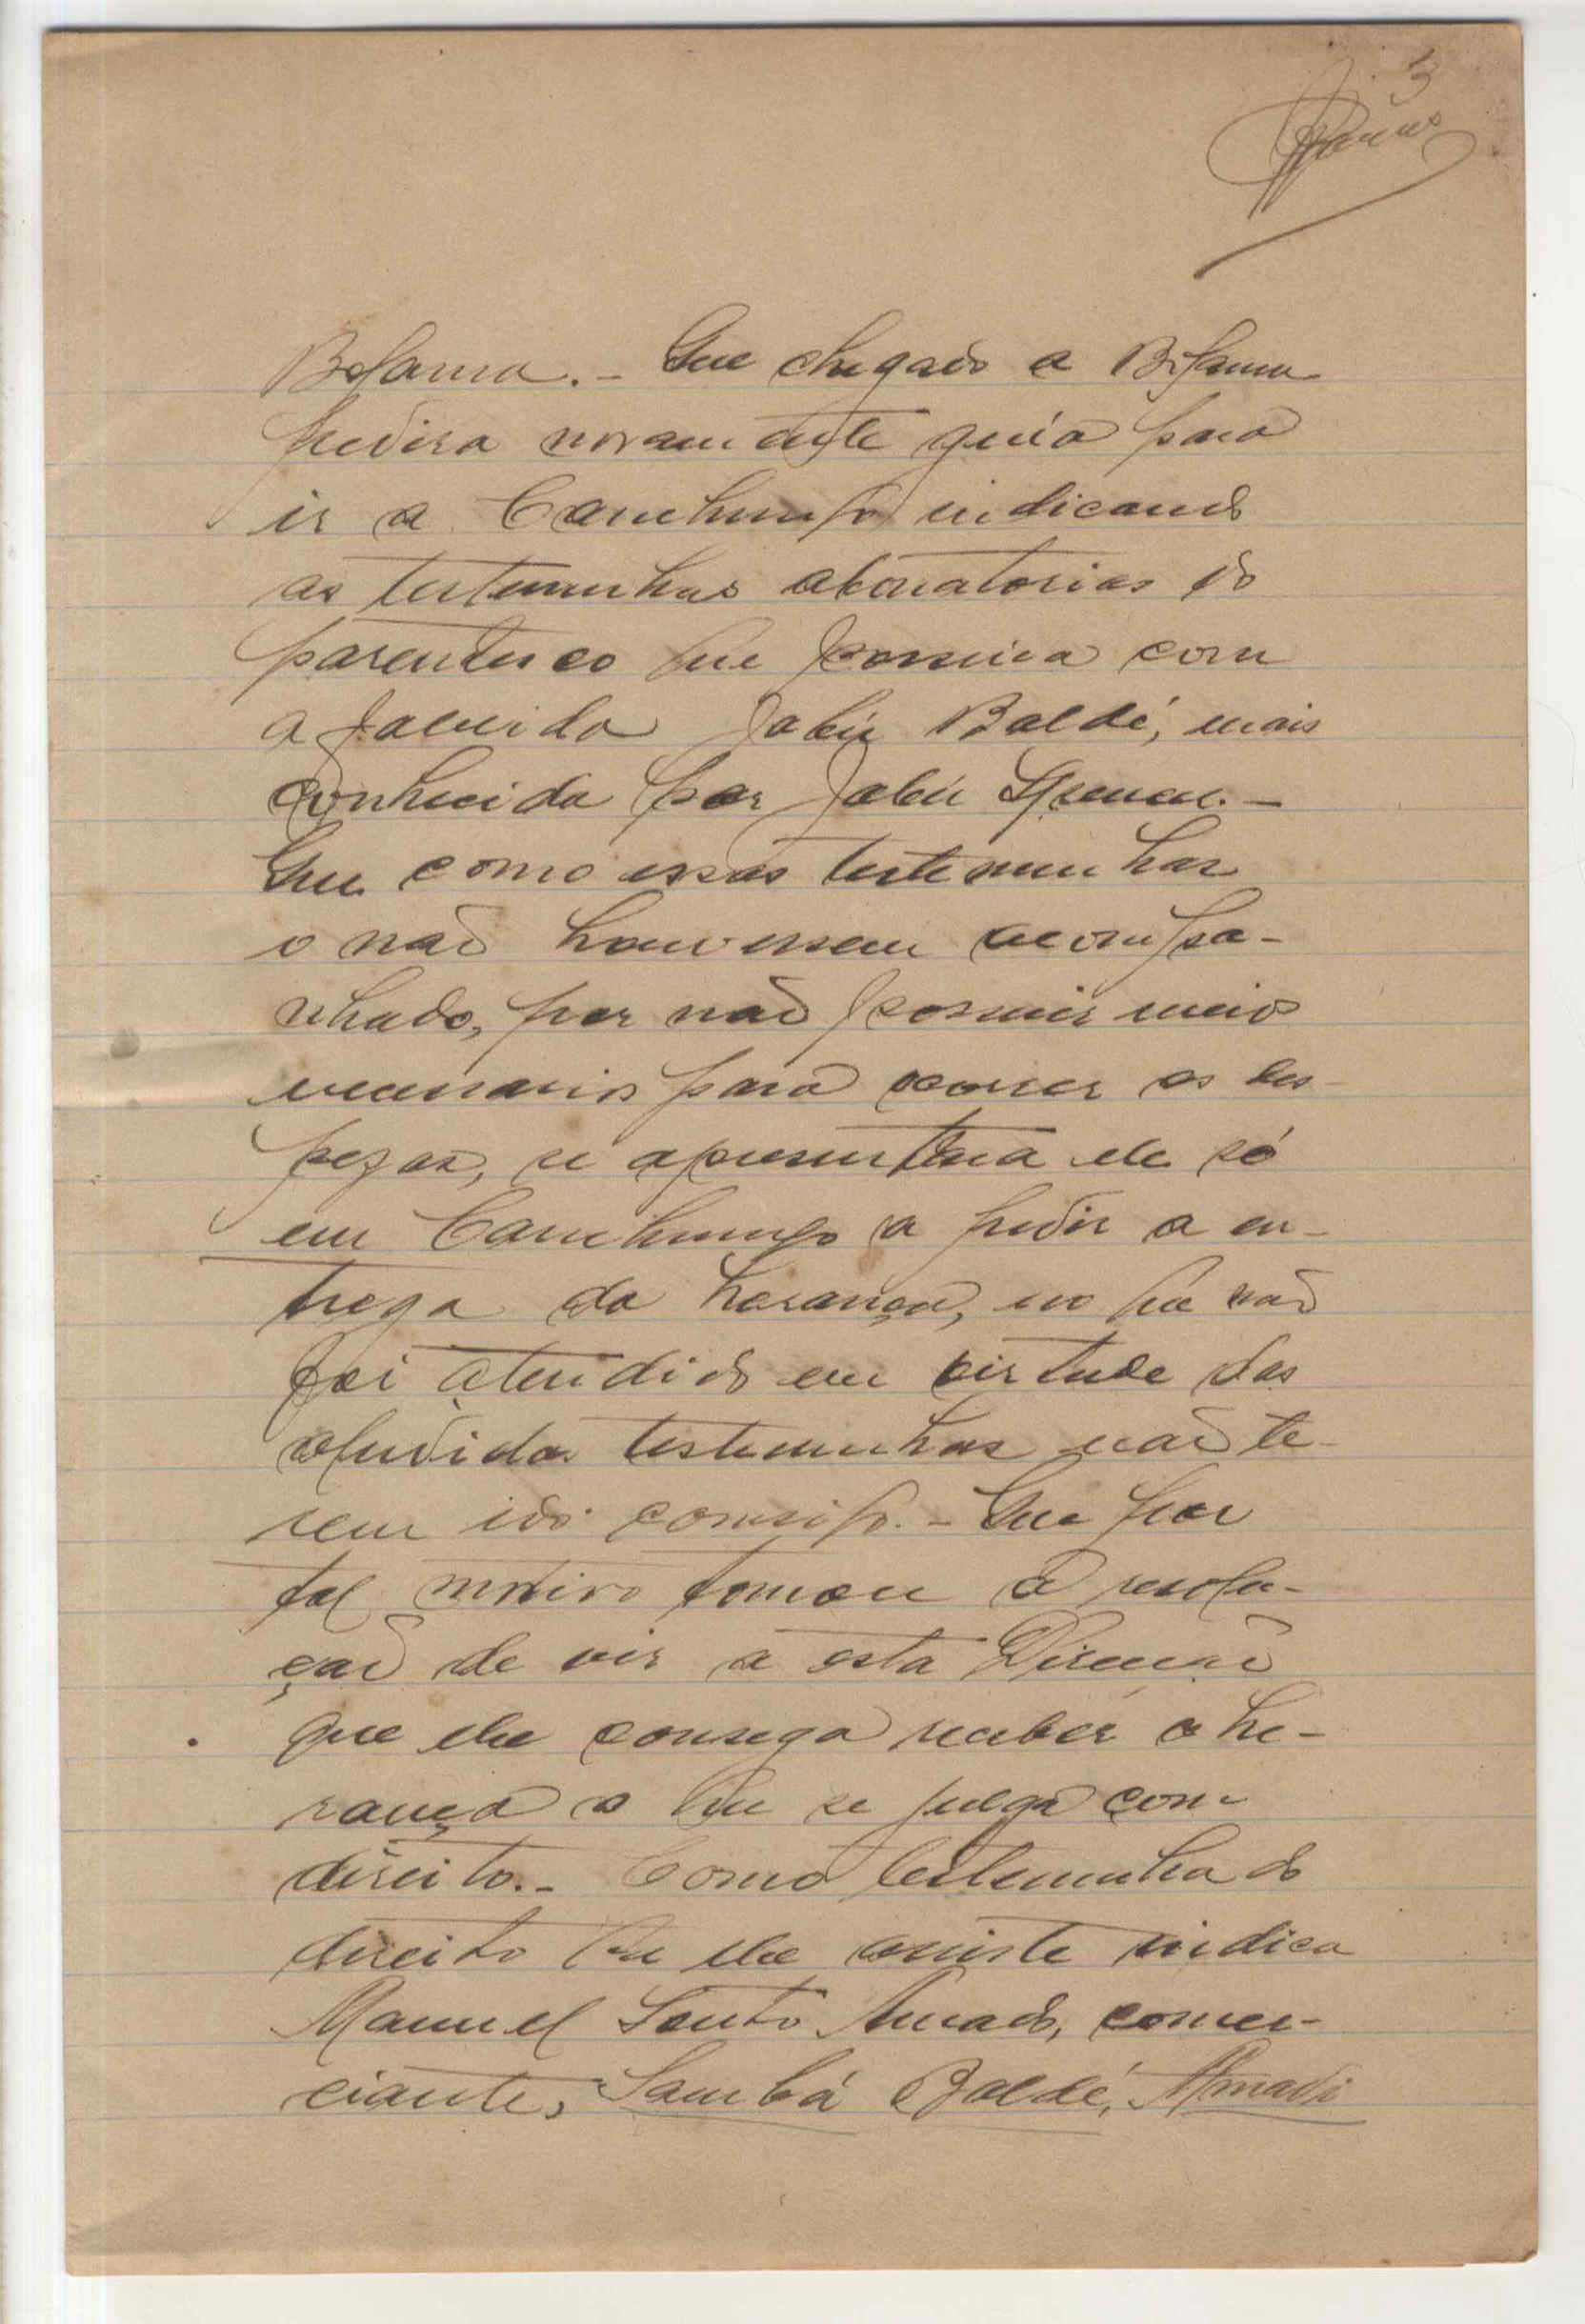 3
Bolama. - Que chegado a Bolama
pedira novamente guia para
ir a Canchungo indicando
as testemunhas abonatorias do
parentesco que possuia com
a falecida Jabú Baldé, mais
conhecida por Jabú
Que como essas testemunhas
o não houvessem acompa-
nhado, por não possuir meios
necessarios para correr as des-
pezas, se apresentára ele só
em Canchungo a pedir a en-
trega da herança, no que não
foi atendido em virtude das
aludidas testemunhas não te-
rem ido comsigo. - Que por
tal motivo tomou a resolu-
ção de vir a esta Direcção
que ele consega receber a he-
rança a que se julga com
direito. - Como testemunha do
direito que lhe assiste indica
Manuel Souto Amado, comer-
ciante, Sambá Baldé, Amadi